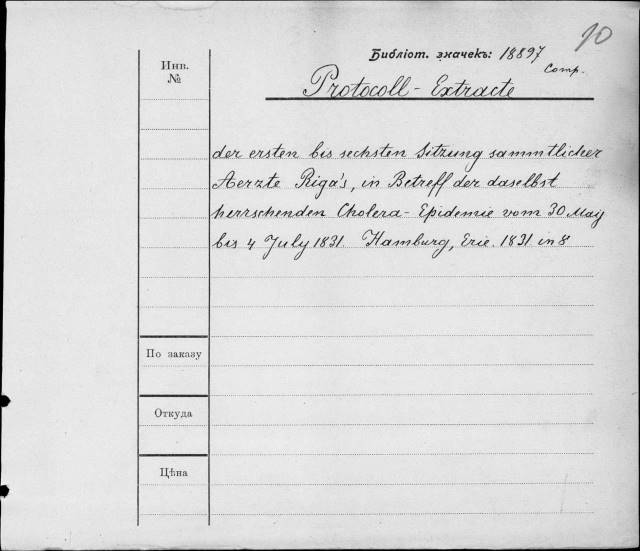 10
Библіот. значекъ: 18897
Comp.
Инв.
№
Protocoll-Extracte
der ersten bis sechsten Sitzung sammtlicher
Aerzte Riga's, in Betreff der daselbst
herrschenden Cholera-Epidemie vom 30 May
bis 4 July 1831. Hamburg, Erie. 1831 in 8
По заказу
Откуда
Цѣна